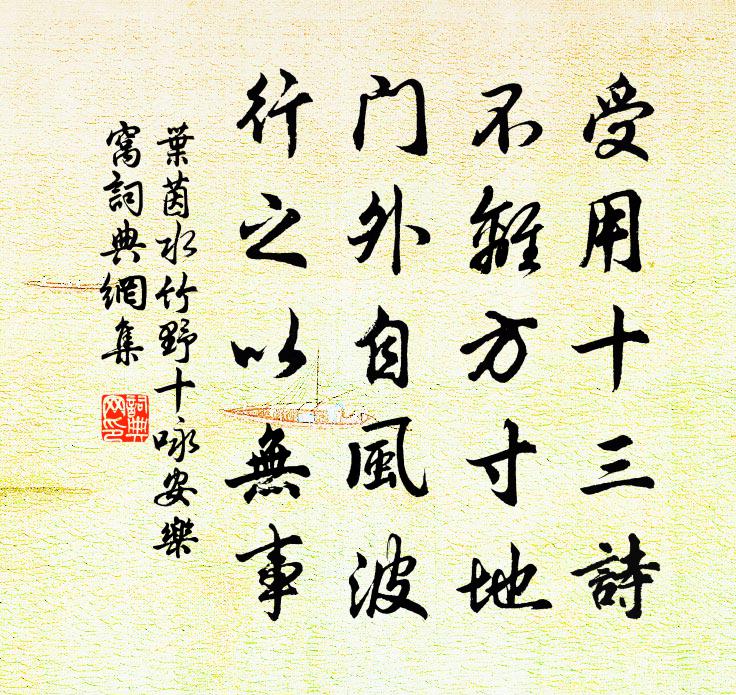 受用十三詩
不離方寸地
門外自風波
行之以無事
葉茵水竹野十咏安樂
窩詞典網集
詞典
网印